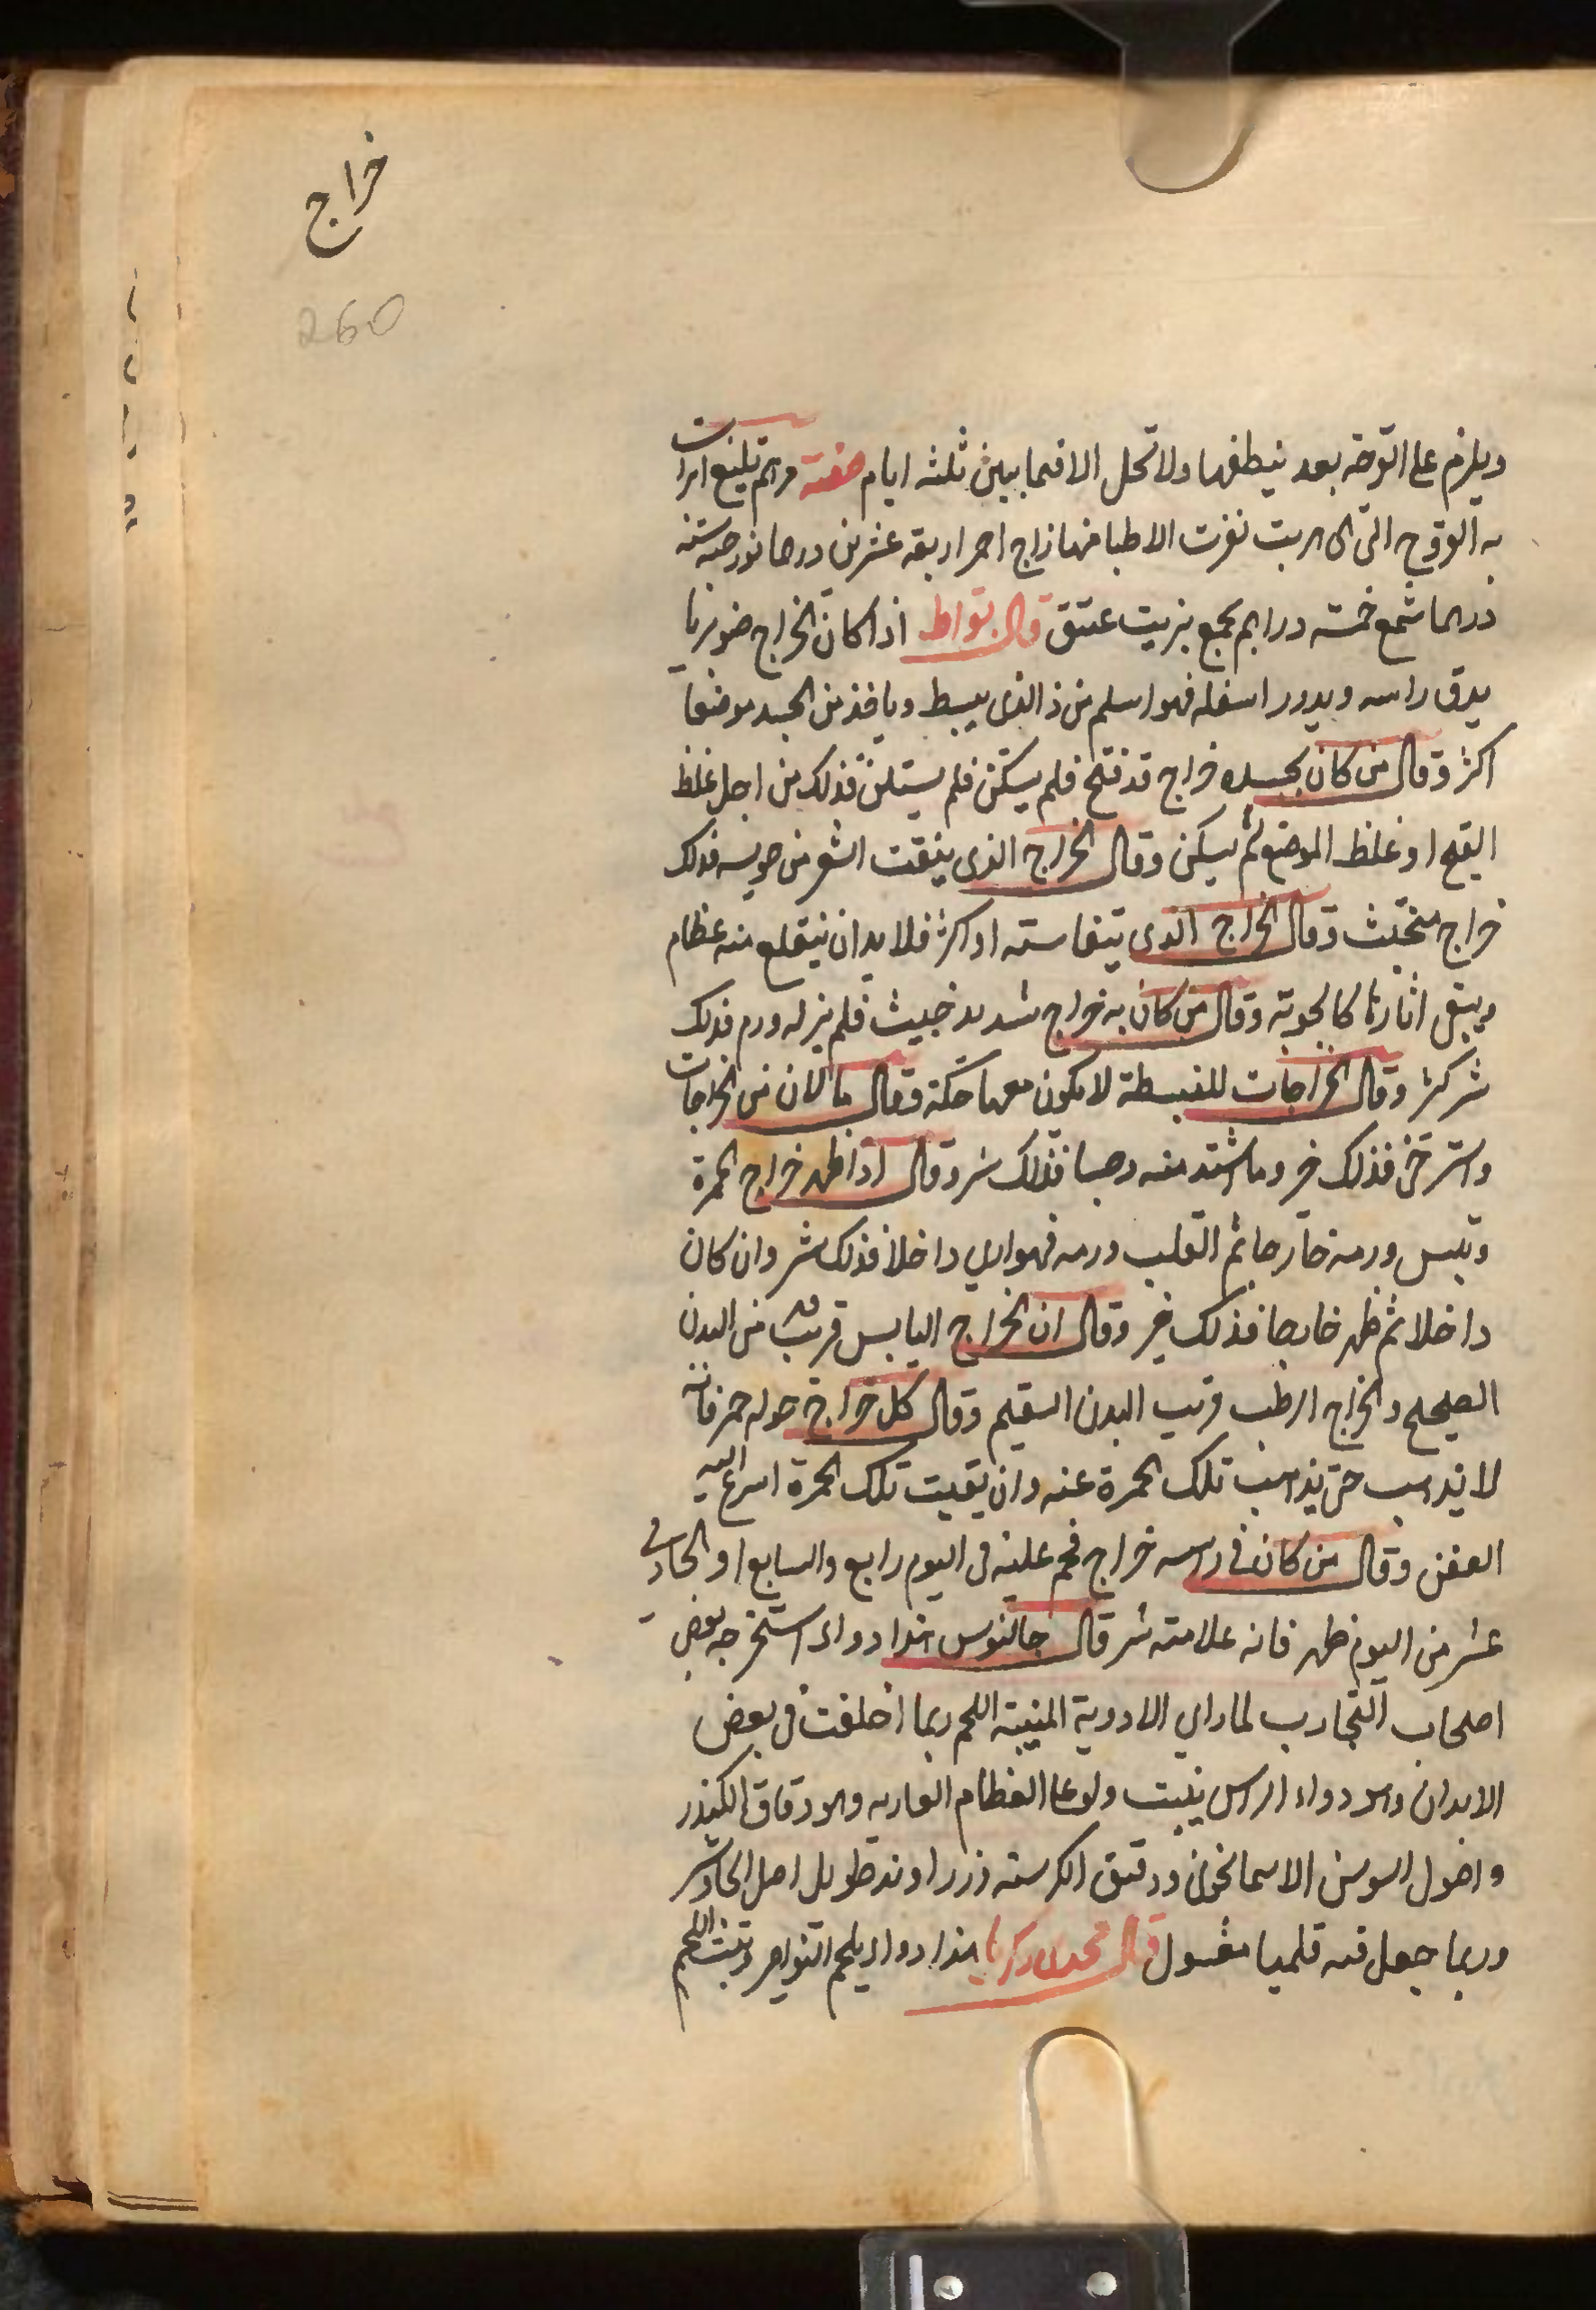 خراج
260
ويلزم على القرحة بعد ينطفها ولا تحل الا فيما بين ثلثة ايام صفة مرهم
به القروح التي نفرت الاطبا منها زاج احمر اربعة عشرين درهما نورة ستة
درهما شمع خمسة دراهم يجمع بزيت عتيق قال بقراط اذا كان الخراج صنوبريا
يدق راسه ويدور اسفله فهو اسلم من ذا الذى يبسط وياخذ من الجسد موضعا
اكثر وقال من كان بجسده خراج قد فتح فلم يسكن فلم يستلن فذلك من اجل غلظ
القيح او غلظ الموضع ثم يسكن وقال الخراج الذى ينقت الشعر من حوله فذلك
خراج متخبث وقال الخراج الذى يتفا سته او اكثر فلا بد ان ينقلع منه عظام
ويبقى اثارها كالجوبة وقال من كان به خراج شديد خبيث فلم يزله ورم فذلك
شر كثر وقال الخراجات المنبسطة لا يكون معها حكة وقال ما لان من الخراجات
واسترخى فذلك خير وما اشتد منه وصبا فذلك شر وقال اذا ظهر خراج الحمرة
ويبس ورمه خارجا ثم انقلب ورمه فهوا الى داخلا فذلك شر وان كان
داخلا ثم ظهر خارجا فذلك خير وقال ان الخراج اليابس قريب من البدن
الصحيح والخراج الرطب قريب البدن السقيم وقال كل خراج حوله حمر فانه
لا يذهب حتى يذهب تلك الحمرة عنه وان بقيت تلك الحمرة اسرع اليه
العفن وقال من كان في راسه خراج فحم عليه فى اليوم رابع والسابع او الحادى
عشر من اليوم ظهر فانه علامته شر قال جالنوس هذا دواء استخرجه بعض
اصحاب التجارب لما راى الادوية المنبتة اللحم ربما اخلفت فى بعض
الابدان وهو دواء الراس ينبت ولو على العظام العارية وهو دقاق الكندر
واصول السوسن الاسمانخونى ودقيق الكرسنة زراوند طويل اصل الجاوشير
وربما جعل فيه قلميا مغسول قال محمد بن زكريا هذا دواء يلحم النواصر وينبت اللحم